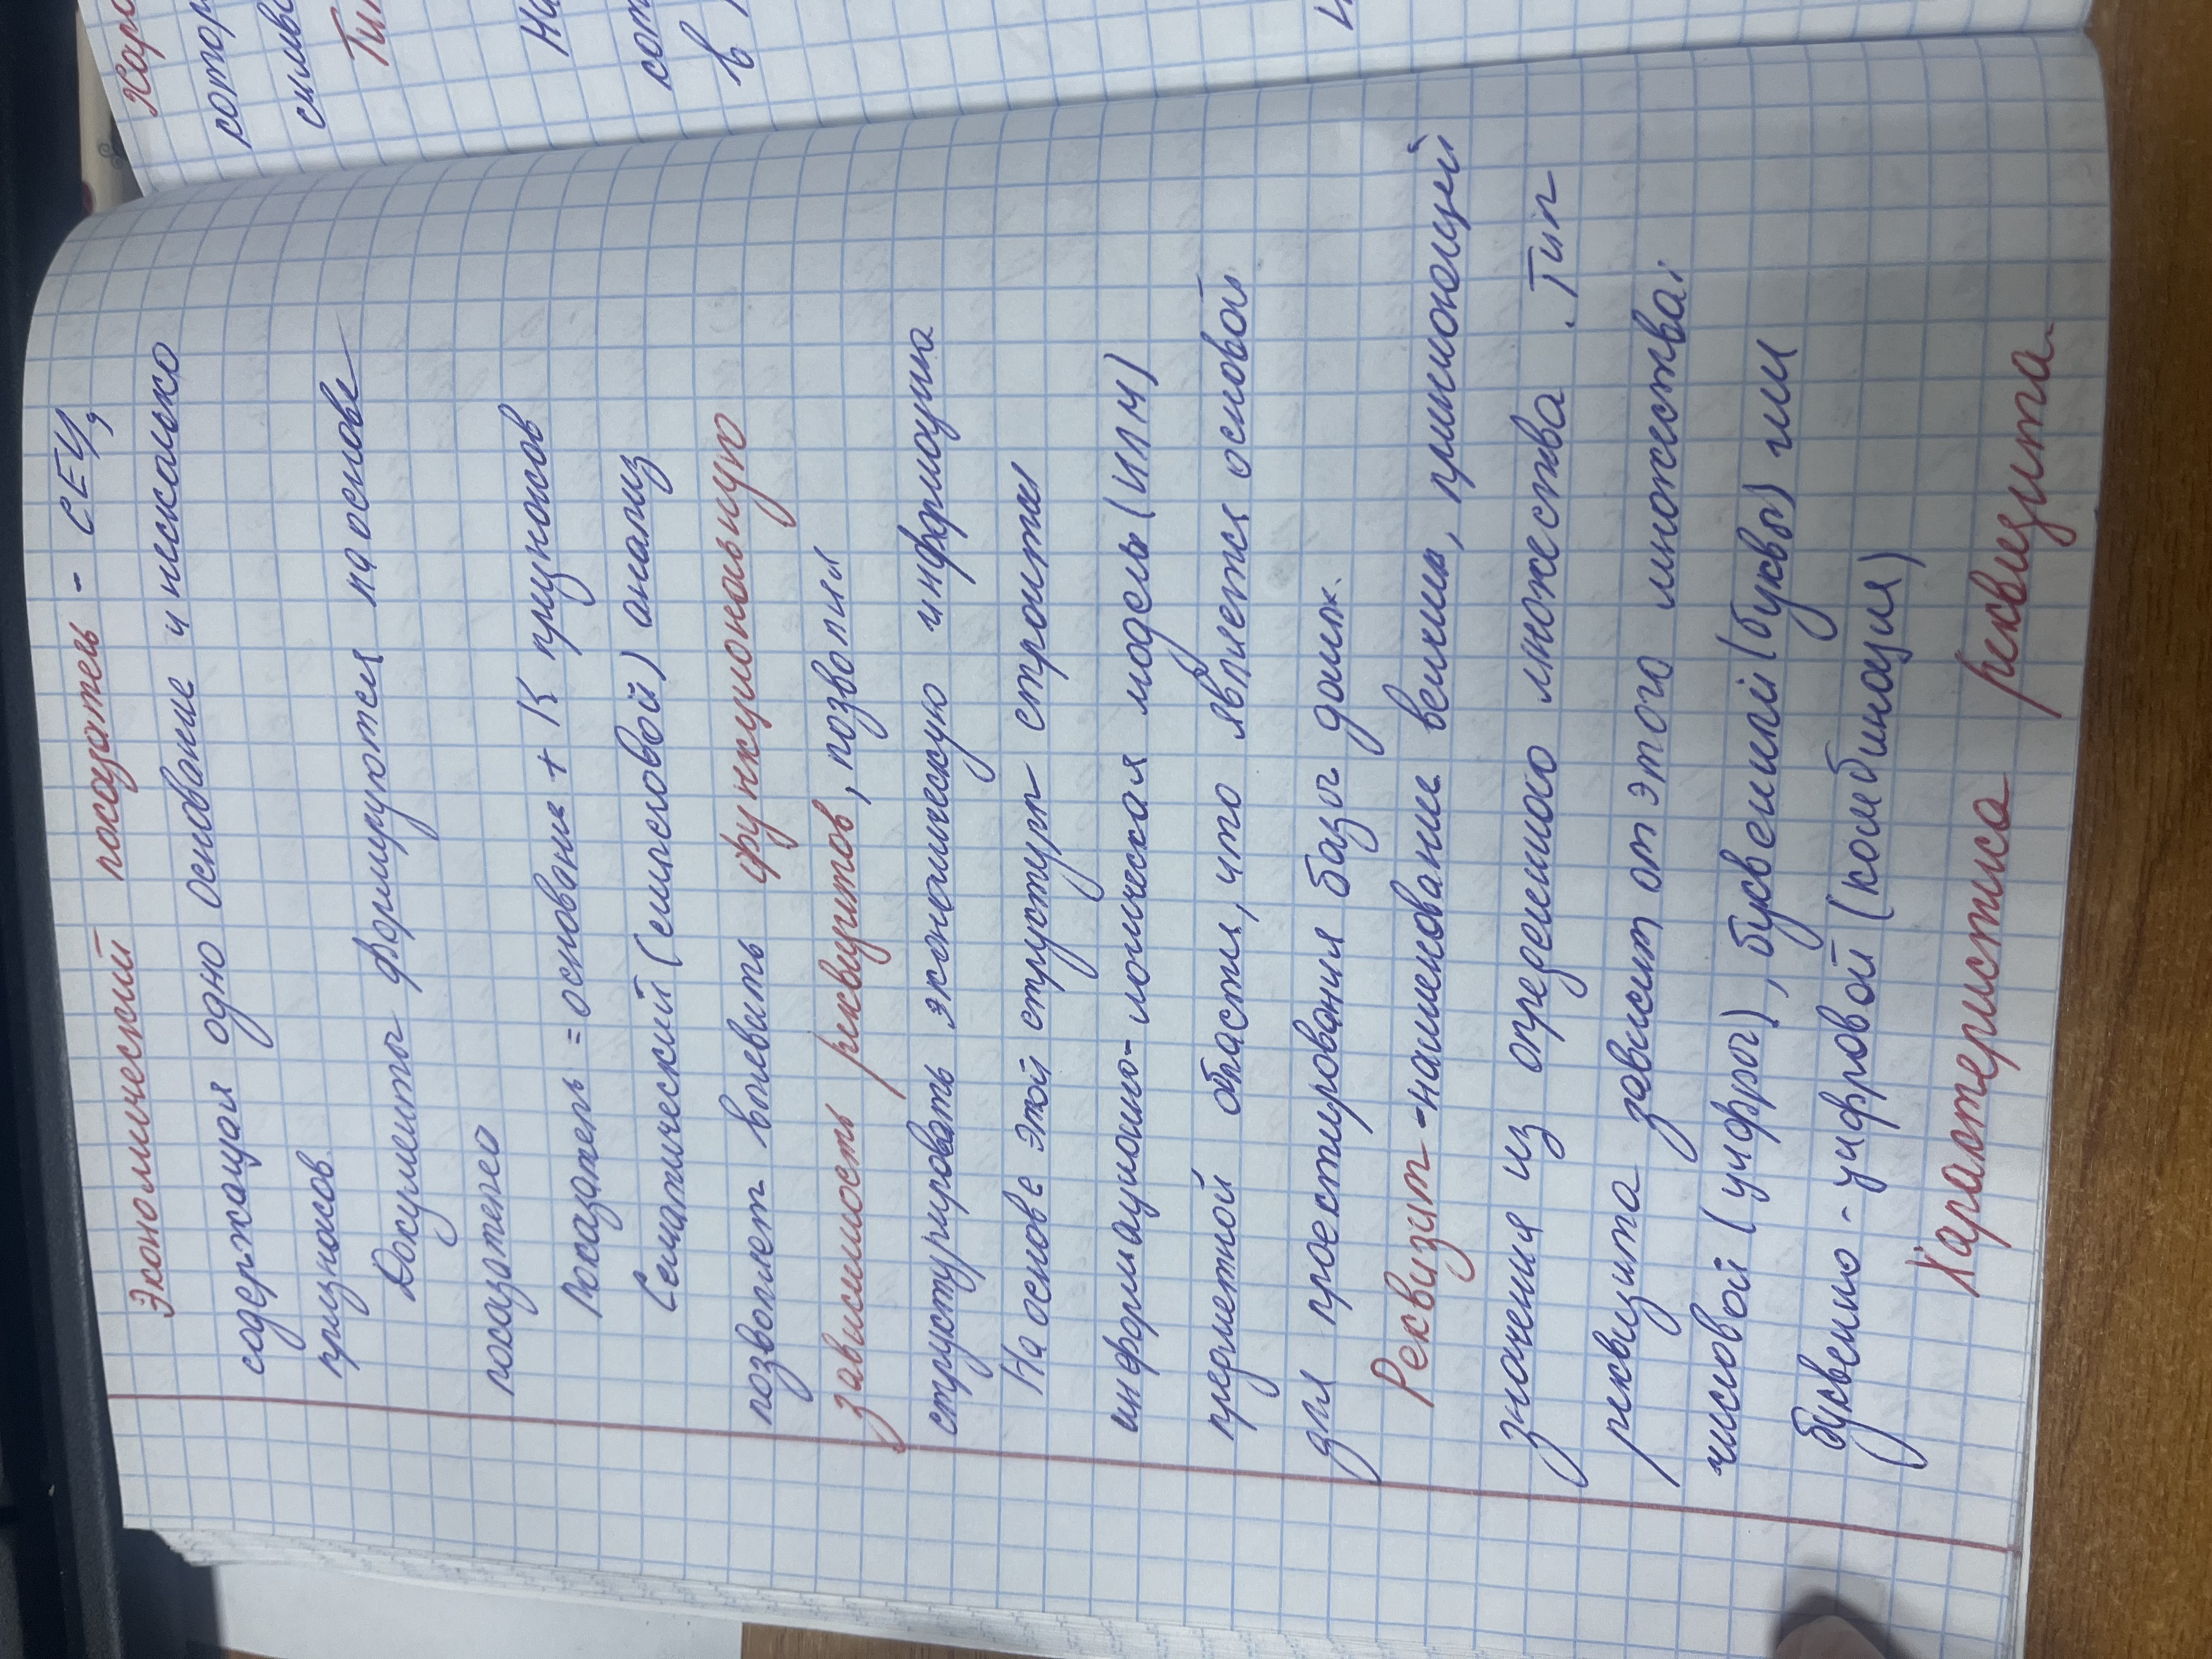 Экономический показатель - СЕИ,
содержащая одно основание и несколько
признаков.
Документы формируются на основе
показателей
Показатель = основание + К признаков
Семантический (смысловой) анализ
позволяет выявить функциональную
зависимость реквизитов, позволяя
структурировать экономическую информацию
На основе этой структуры строится
информационно-логическая модель (ИЛМ)
предметной области, что является основой
для проектирования базы данных.
Реквизит - наименование величин, принимающей
значения из определенного множества. Тип
реквизита зависит от этого множества:
числовой (цифры), буквенный (буквы) или
буквенно-цифровой (комбинация)
Характеристика реквизита.